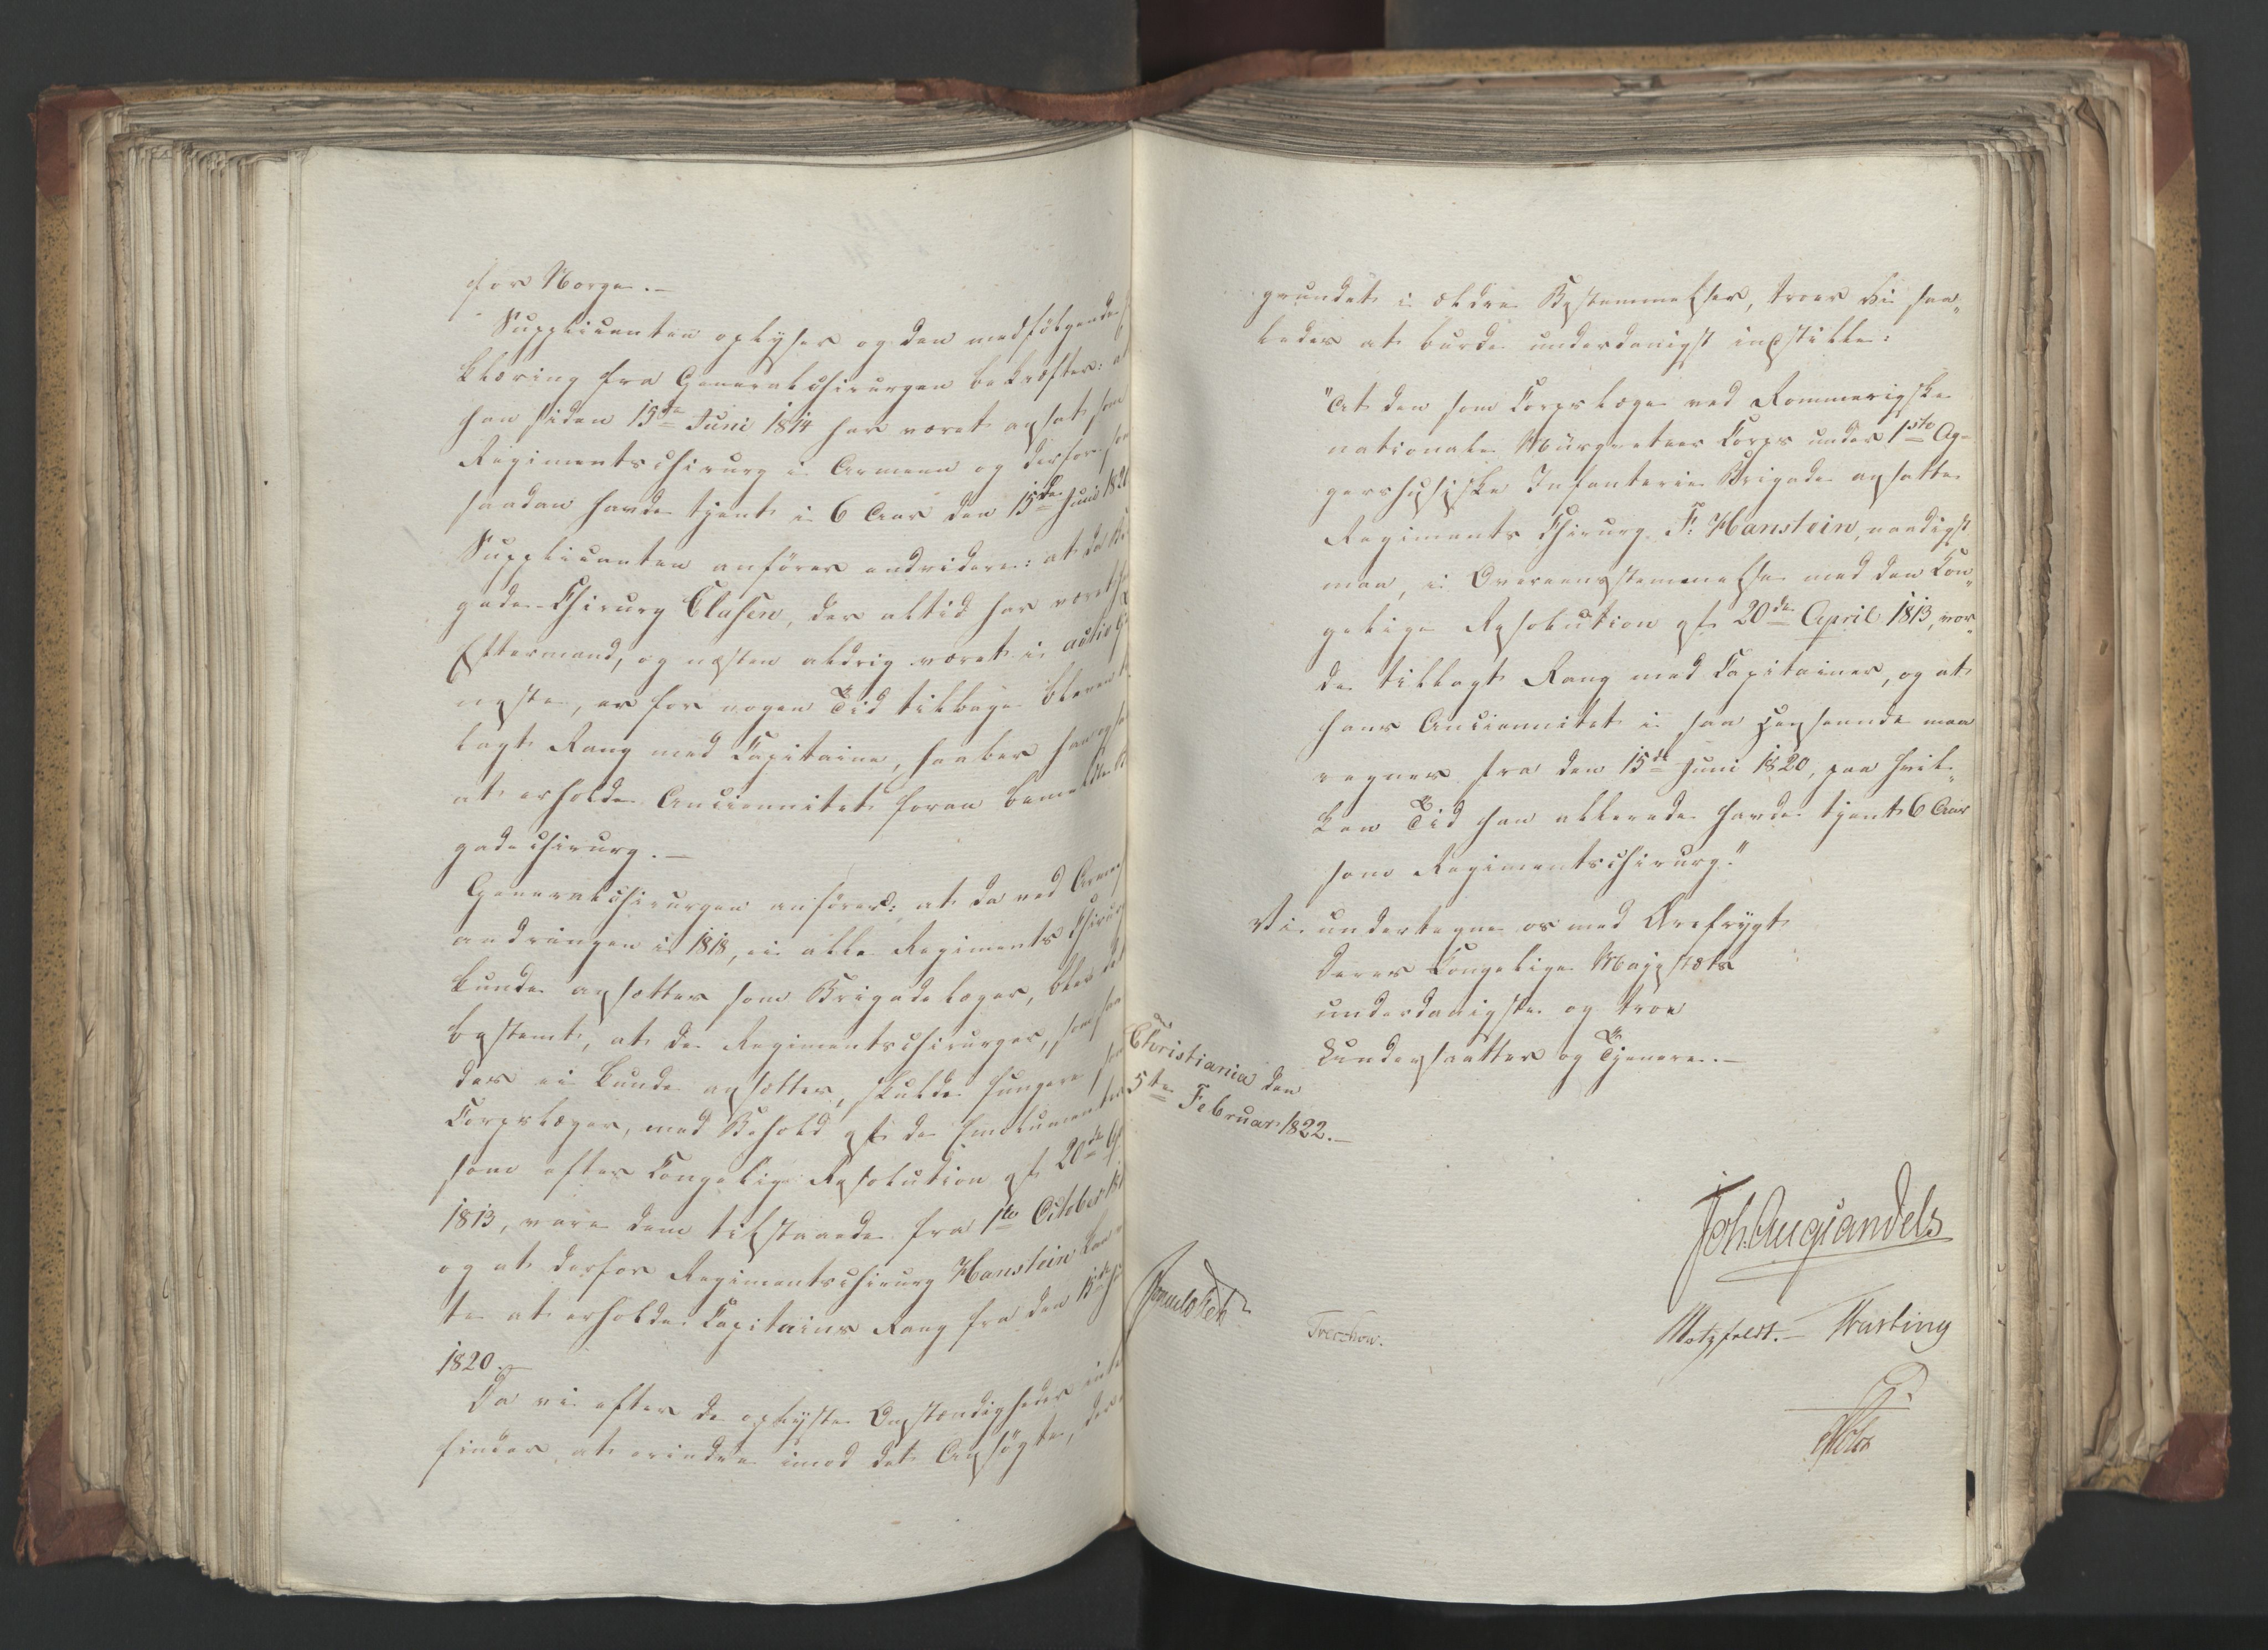 for Norge.–
Supplicanten oplyser og den medfølgende
klæring fra Generalchirurgen bekræfter: at
han siden 15de Juni 1814 har været ansat som
Regimentschirurg i Armeen og derfor, som
saadan havde tjent i 6 Aar den 15de Juni 1820
Supplicanten anfører endvidere: at da Bri
gade-Chirurg Clasen, der altid har været
Eftermand, og næsten aldrig været i activ
neste, er for nogen Tid tilbage bleven
lagt Rang med Capitaine, haaber han
at erholde Anciennitet foran bemeldte Bri
gadechirurg.–
Generalchirurgen anfører: at da ved Armee
andringen i 1818, ei alle Regiments Chirurg
kunde ansættes som Brigadelæger, blev det
bestemt, at de Regimentschirurger, som saa
der ei kunde ansættes, skulde fungere som
Corpslæger, med Behold af de Emolumenter
som efter Kongelig Resolution af 20de
1813, vare dem tilstaaede fra 1ste October
og at derfor Regimentschirurg Hanstein
te at erholde Capitains Rang fra den 15de
1820.–
Da vi efter de oplyste Omstændigheder intet
finder at erindre imod det Ansøgte, der
grundet i ældre Bestemmelser, troer Vi saa„
ledes at burde underdanigst indstille:
"At den som Corpslæge ved Rommerigske
nationale Musqueteer Corps under 1ste Ag-
gershusiske Infanterie Brigade ansatte
Regiments Chirurg F: Hanstein, naadigst
maa, i Overeensstemmelse med den Kon„
gelige Resolution af 20de April 1813, vor„
de tillagt Rang med Capitainer, og at
hans Anciennitet i saa Henseende maa
regnes fra den 15de Juni 1820, paa hvil„
ken Tid han allerede havde tjent 6 Aar
som Regimentschirurg."
Vi undertegne os med Ærefrygt
Deres Kongelige Majestæts
underdanigste og troe
Undersaatter og Tjenere.–
Christiania den
5te Februar 1822.–
Joh. Aug. Sandels
Motzfeldt.– Fasting
Treschow.